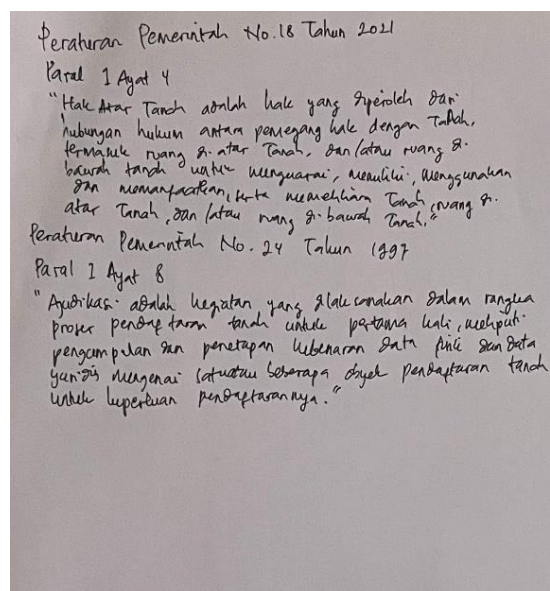 Peraturan Pemerintah No.18 Tahun 2021
Pasal 1 Ayat 4
"Hak Atas Tanah adalah hak yang diperoleh dari
hubungan hukum antara pemegang hak dengan Tanah,
termasuk ruang di atas Tanah, dan/atau ruang di
bawah tanah untuk menguasai, memiliki, menggunakan
dan memanfaatkan, serta memelihara Tanah, ruang di
atas Tanah, dan/atau ruang di bawah Tanah."
Peraturan Pemerintah No. 24 Tahun 1997
Pasal 1 Ayat 8
"Ajudikasi adalah kegiatan yang dilaksanakan dalam rangka
proses pendaftaran tanah untuk pertama kali, meliputi
pengumpulan dan penetapan kebenaran data fisik dan data
yuridis mengenai satu atau beberapa obyek pendaftaran tanah
untuk keperluan pendaftarannya."